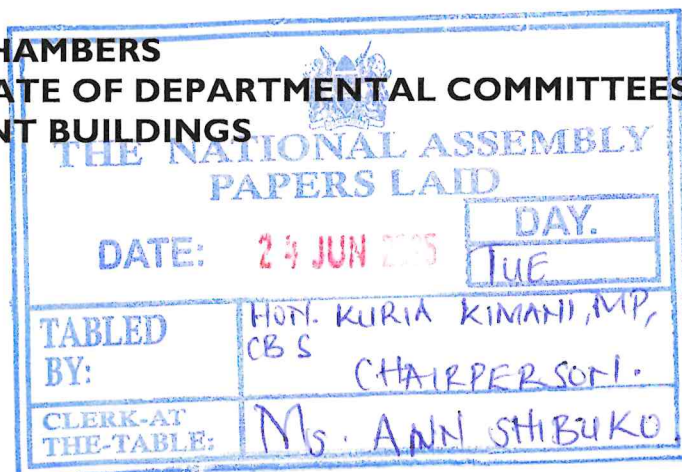 HAMBERS
ATE OF DEPARTMENTAL COMMITTEES
NT BUILDINGS
THE NATIONAL ASSEMBLY
PAPERS LAID
DATE: 24 JUN
DAY.
TUE
TABLED BY:
HON. KURIA KIMANI, MP,
CBS
CHAIRPERSON.
CLERK-AT
THE-TABLE:
Ms. ANN SHIBUKO